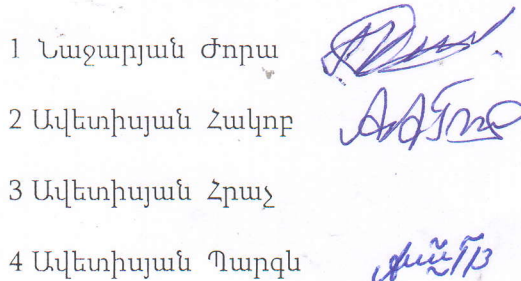 1 Նաջարյան Ժորա
2 Ավետիսյան Հակոբ
3 Ավետիսյան Հրաչ
4 Ավետիսյան Պարգև